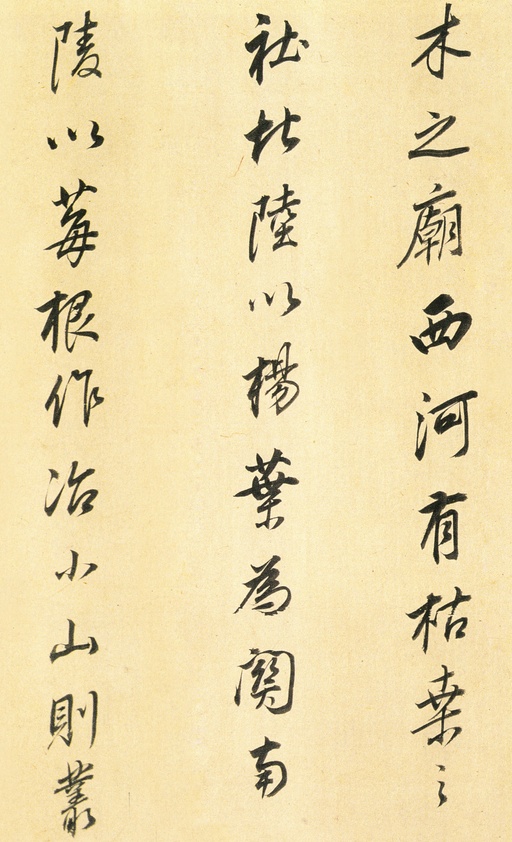 木之廟西河有枯桒之
社北陸以楊葉為關南
陵以莓根作冶小山則叢